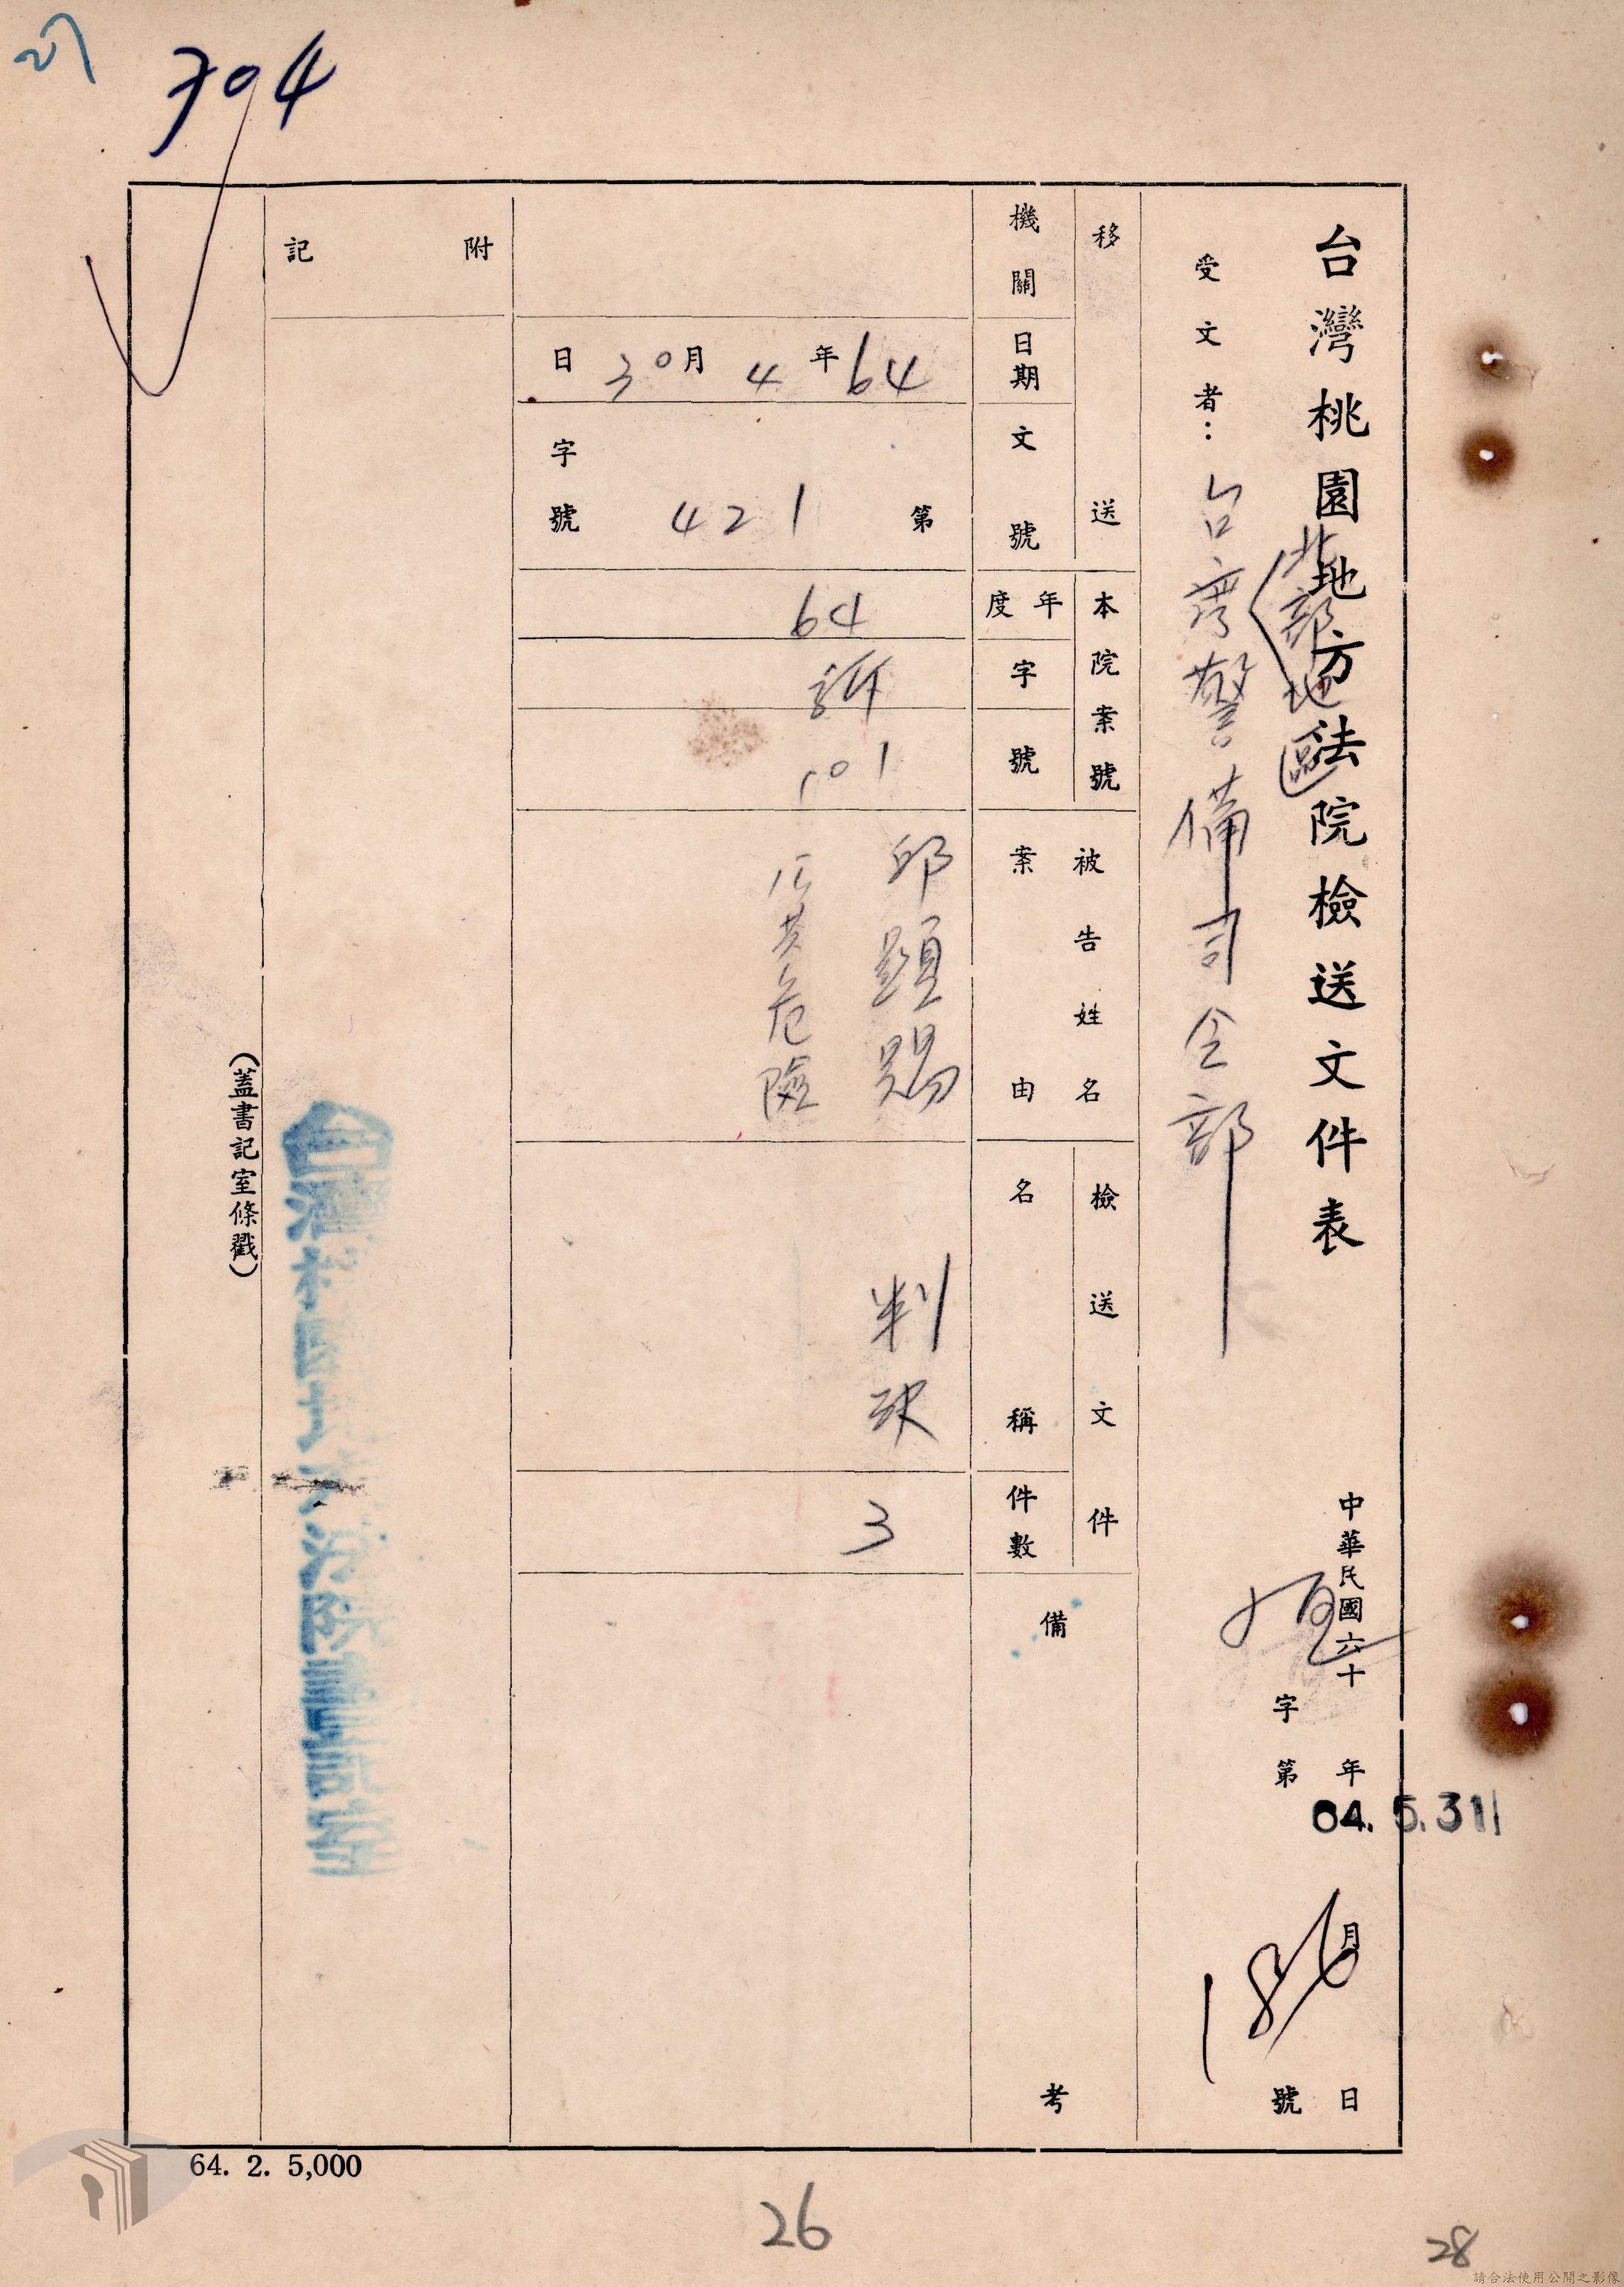 台灣桃園地方法院檢送文件表
中華民國六十 年 月 日
64.5.31
字第 號
受文者：台灣警備司令部
北部地區
移送
機關
日期
文號
本院案號
年度
字
號
被告姓名
案由
檢送文件
名稱
件數
備考
64年4月30日
第421
字號
64
訴
101
邱顯賜
公共危險
判決
3
附記
(蓋書記室條戳)
394
64. 2. 5,000
26
28
請合法使用公開之影像